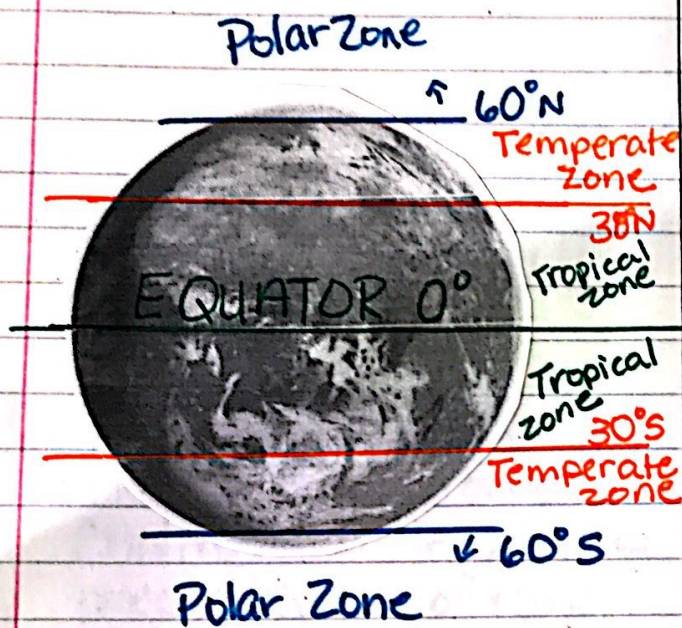 Polar Zone
60°N
Temperate
Zone
30°N
Tropical
zone
EQUATOR 0°
Tropical
zone
30°S
Temperate
zone
60°S
Polar Zone